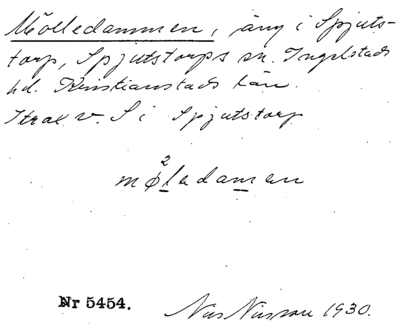 Mölledammen, äng i Spjuts-
torp, Spjutstorps sn. Ingelstads
hd. Kristianstads län.
Strax v. S i Spjutstorp
2
møledamen
Nr 5454. Nils Nilsson 1930.